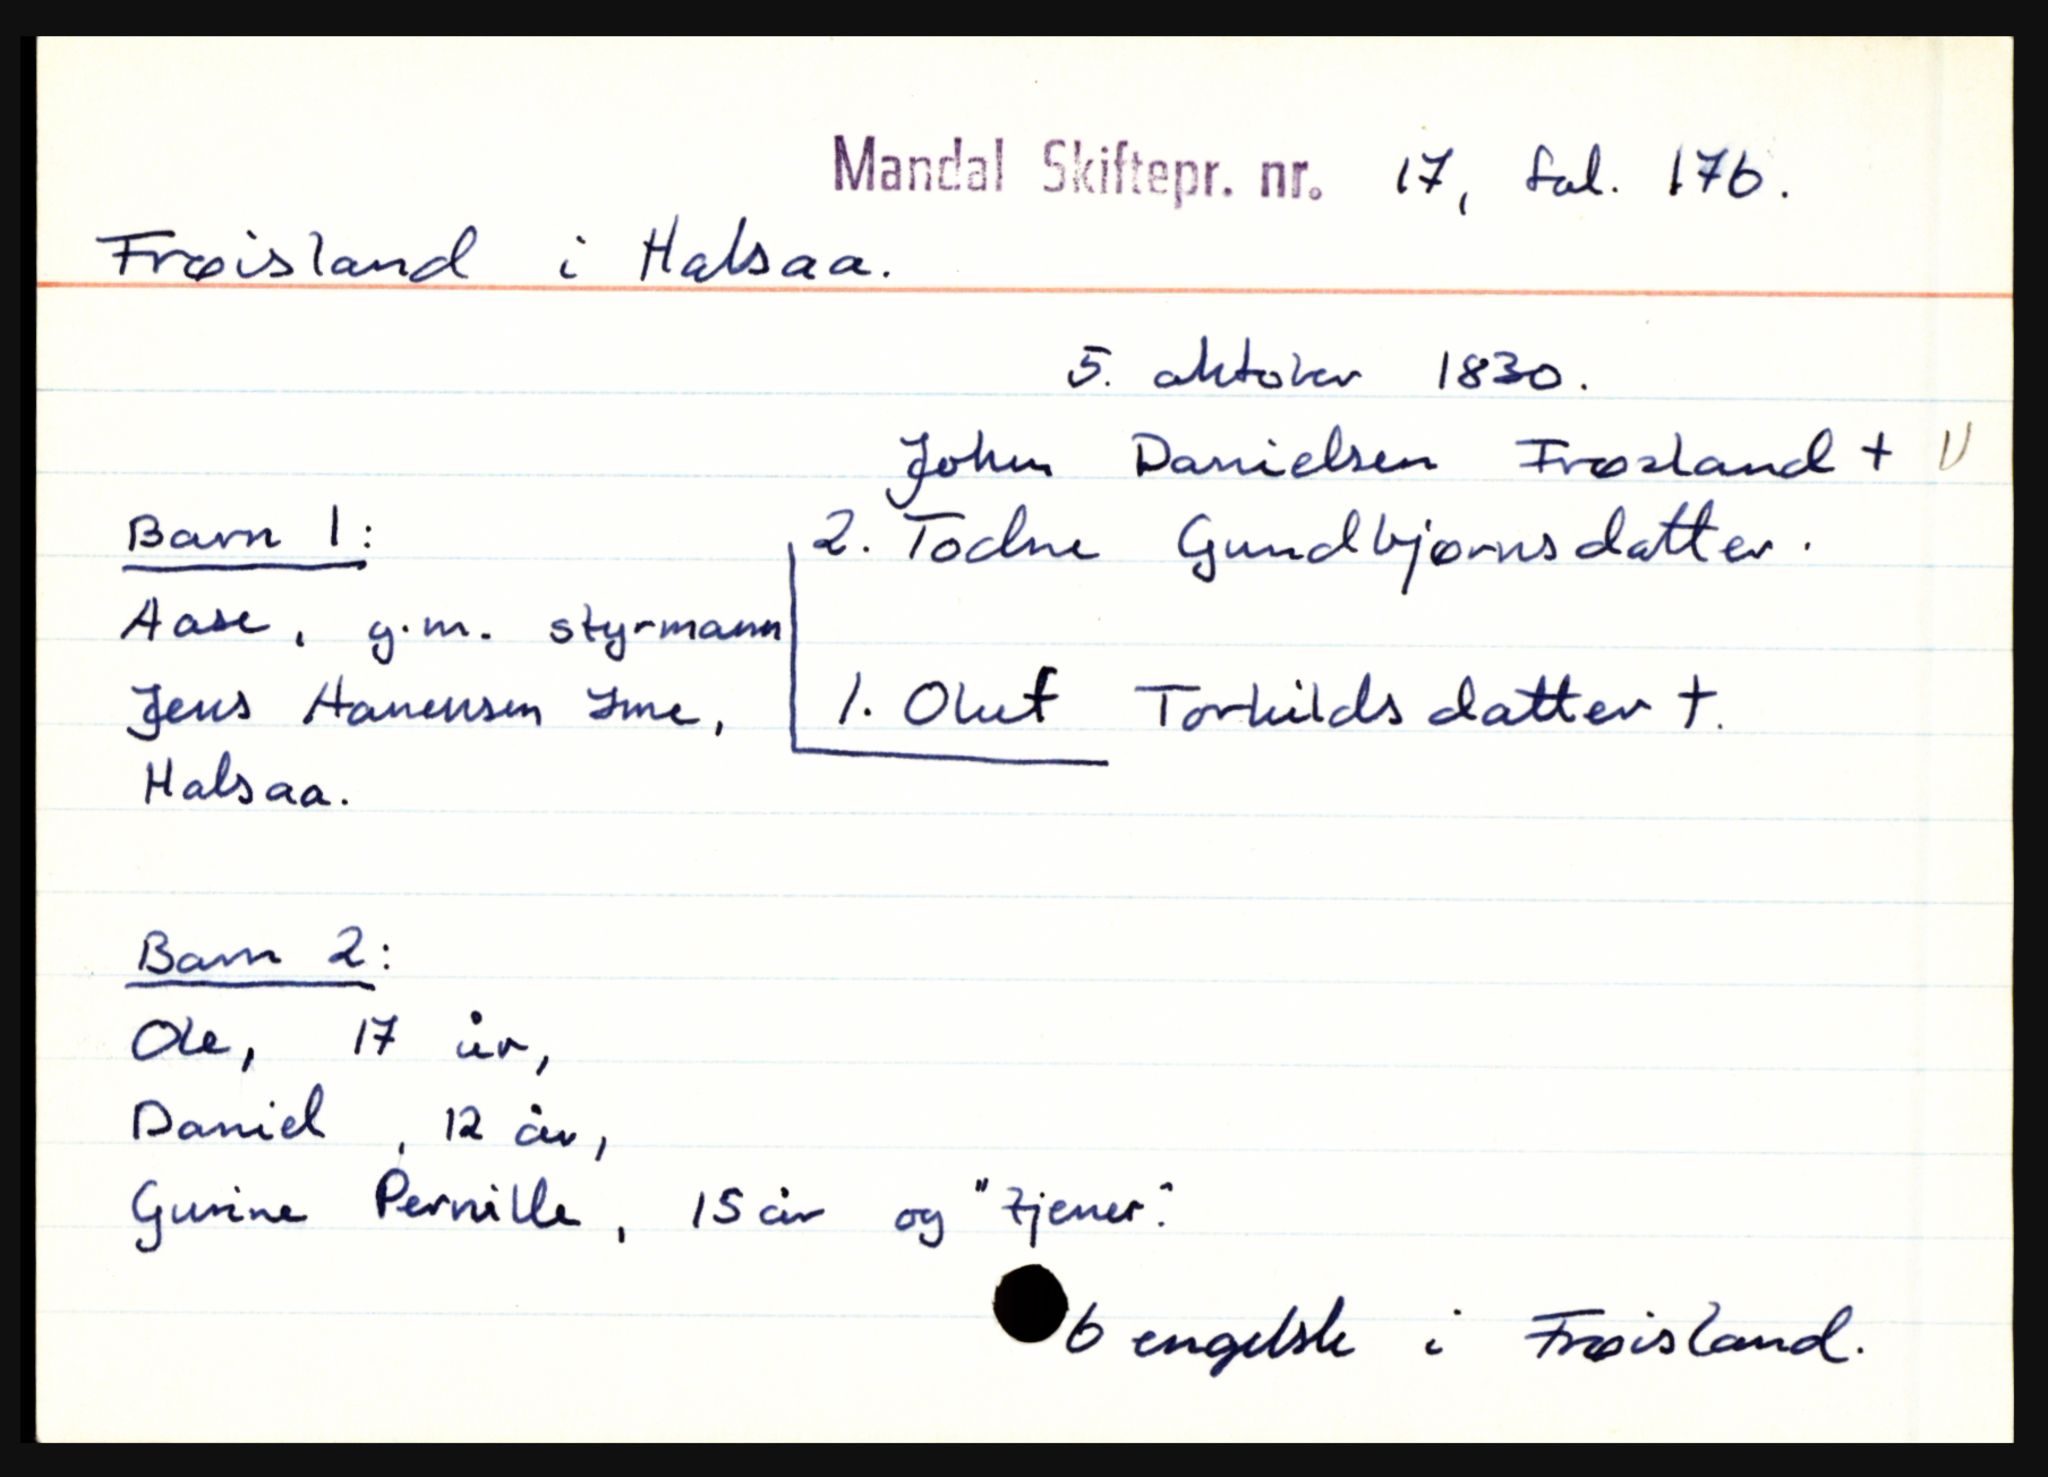 Mandal Skiftepr. nr. 17, fol. 176.
Frøisland i Halsaa.
5. oktober 1830.
John Danielsen Frøsland +
Barn 1:
2. Todne Gundbjørnsdatter.
Aase, g.m. styrmann
Jens Hanensen Ime,
1. Oluf Torkildsdatter +.
Halsaa.
Barn 2:
Ole, 17 år,
Daniel, 12 år,
Gurine Pernille, 15 år og "tjener".
6 engelsk i Frøisland.